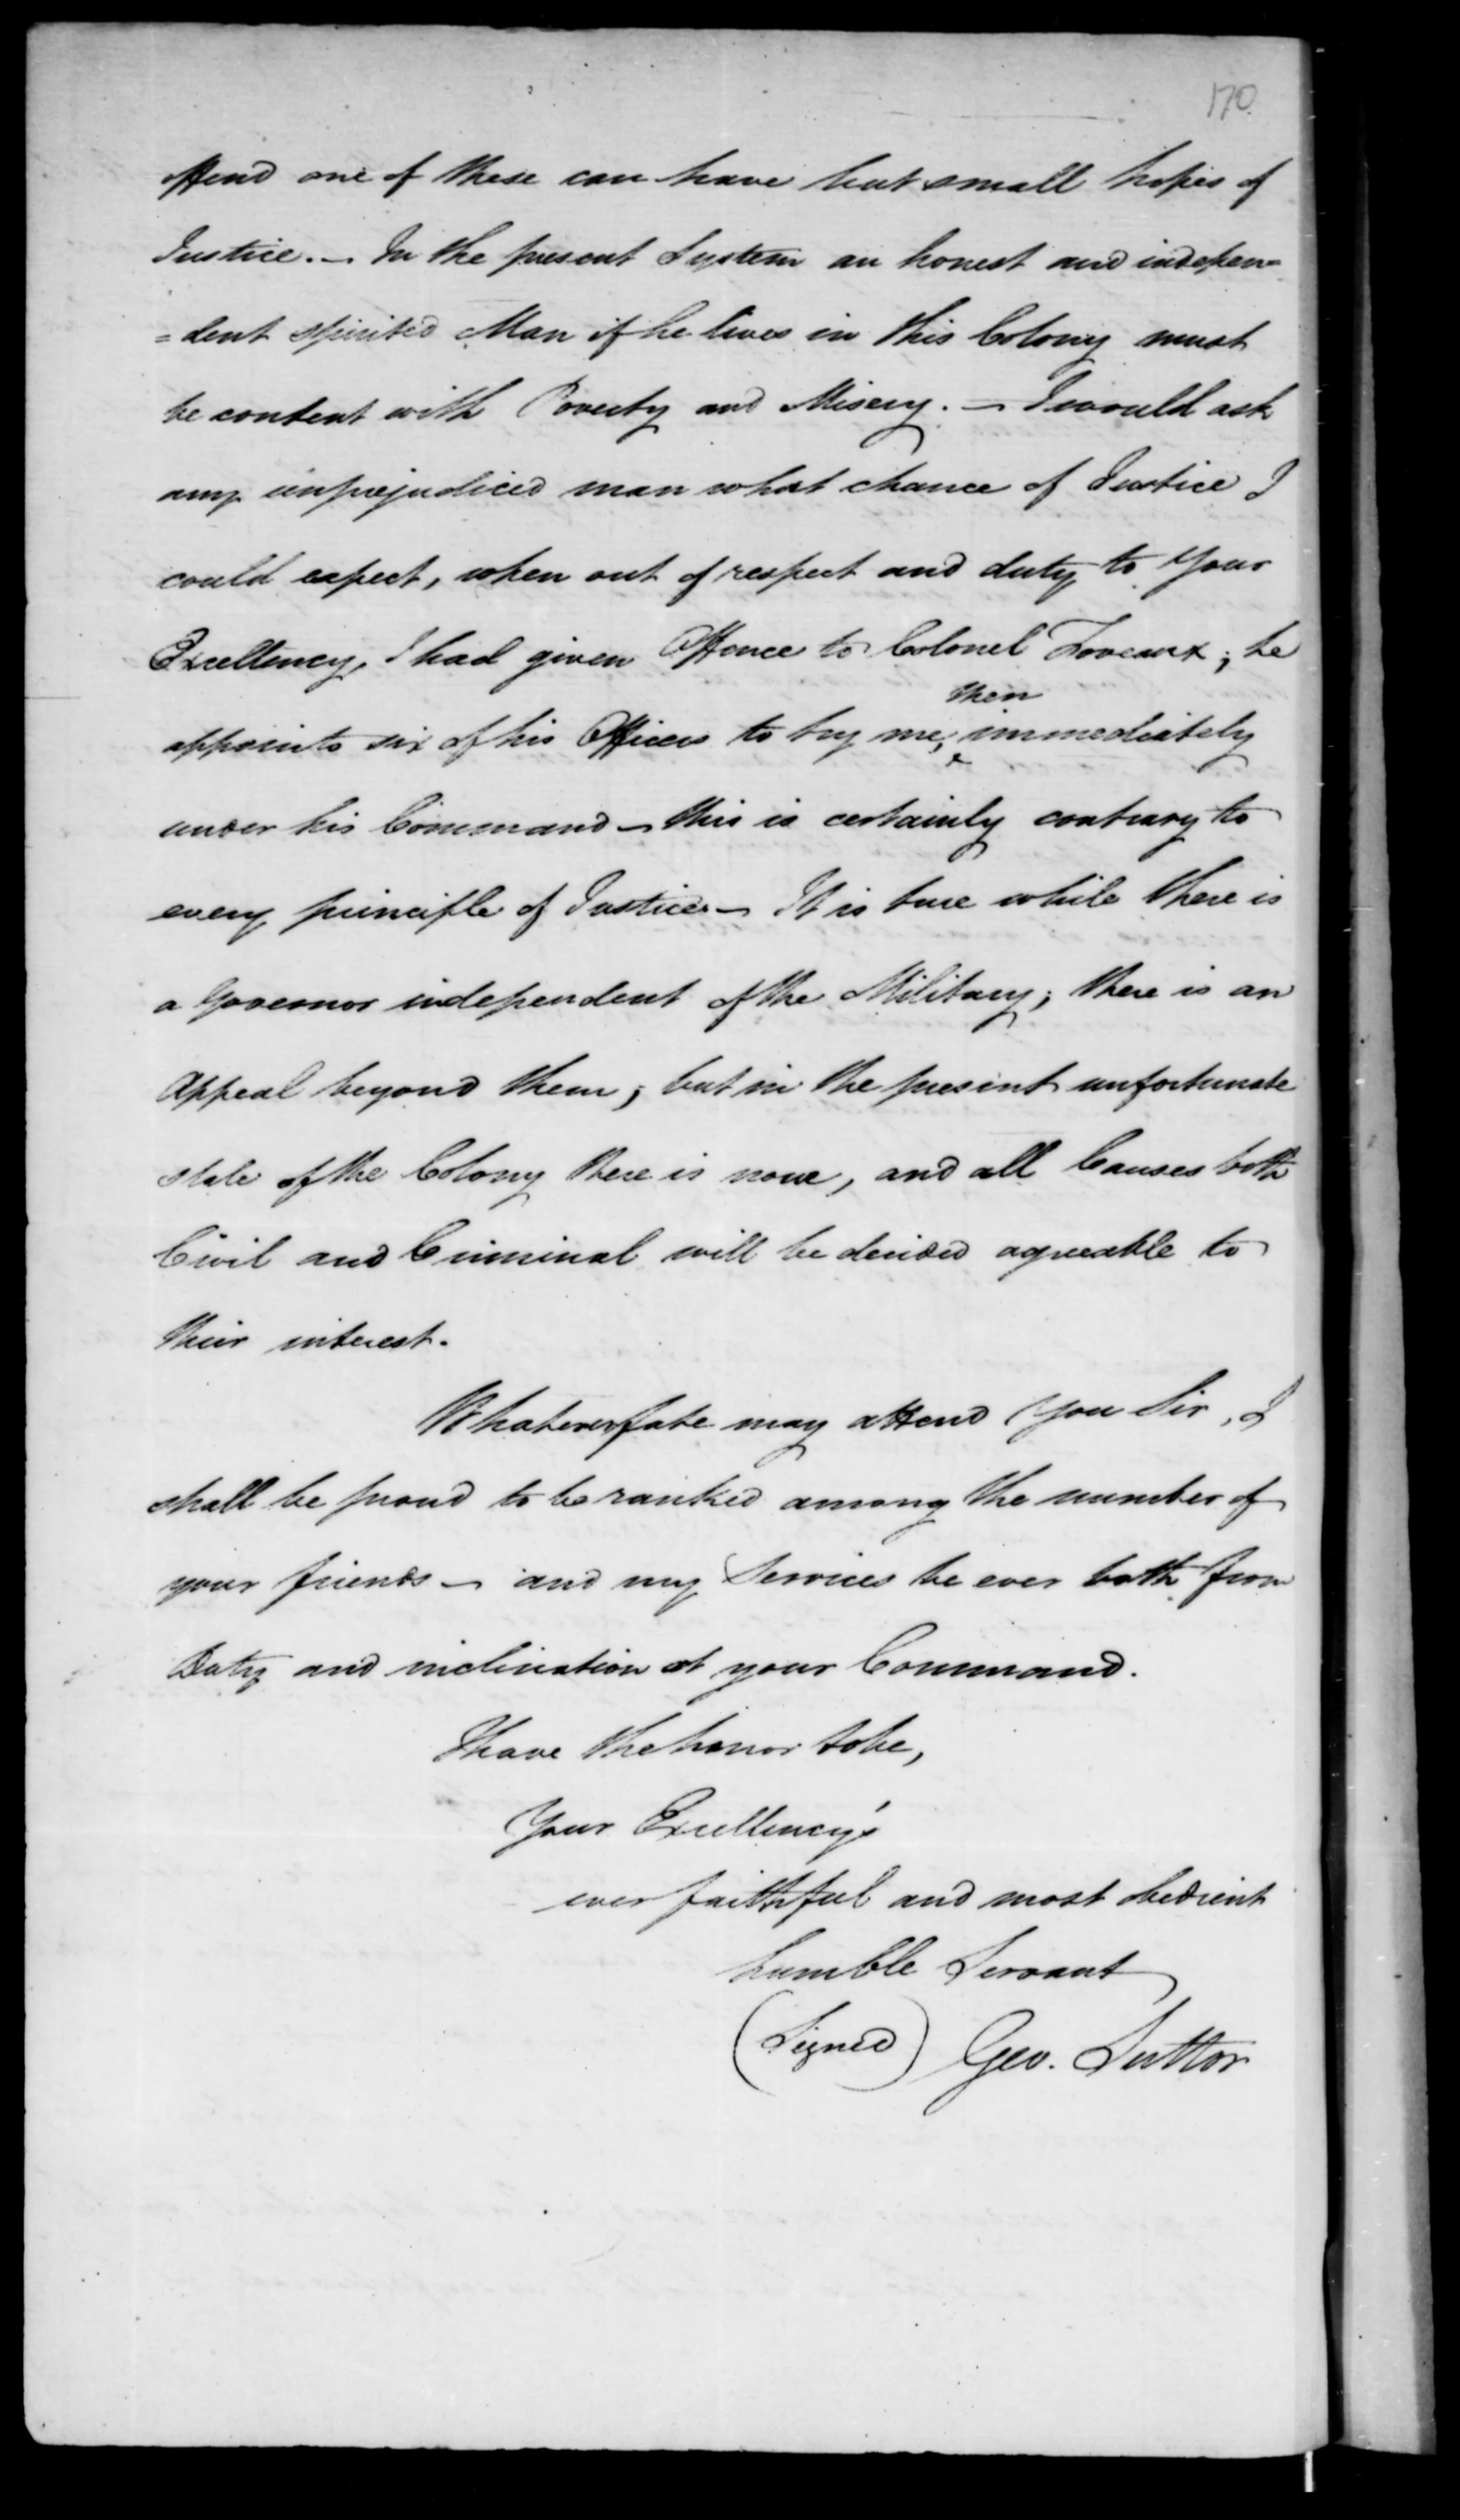 170
offend one of these can have but small hopes of
Justice. – In the present System an honest and indepen=
=dent spirited Man if he lives in this Colony must
be content with Poverty and Misery. – I would ask
any unprejudiced man what chance of Justice I
could expect, when out of respect and duty to Your
Excellency, I had given Offence to Colonel Foveaux; he
then
appoints six of his Officers to try me, immediately
under his Command – this is certainly contrary to
every principle of Justice – It is true while there is
a Governor independent of the Military; there is an
Appeal beyond them; but in the present unfortunate
state of the Colony there is none, and all Causes both
Civil and Criminal will be decided agreeable to
their interest.
Whatever fate may attend You Sir, I
shall be proud to be ranked among the number of
your friends – and my Services be ever both from
Duty and inclination at your Command.
I have the honor to be,
Your Excellency's
ever faithful and most obedient
humble Servant
(Signed) Geo. Suttor